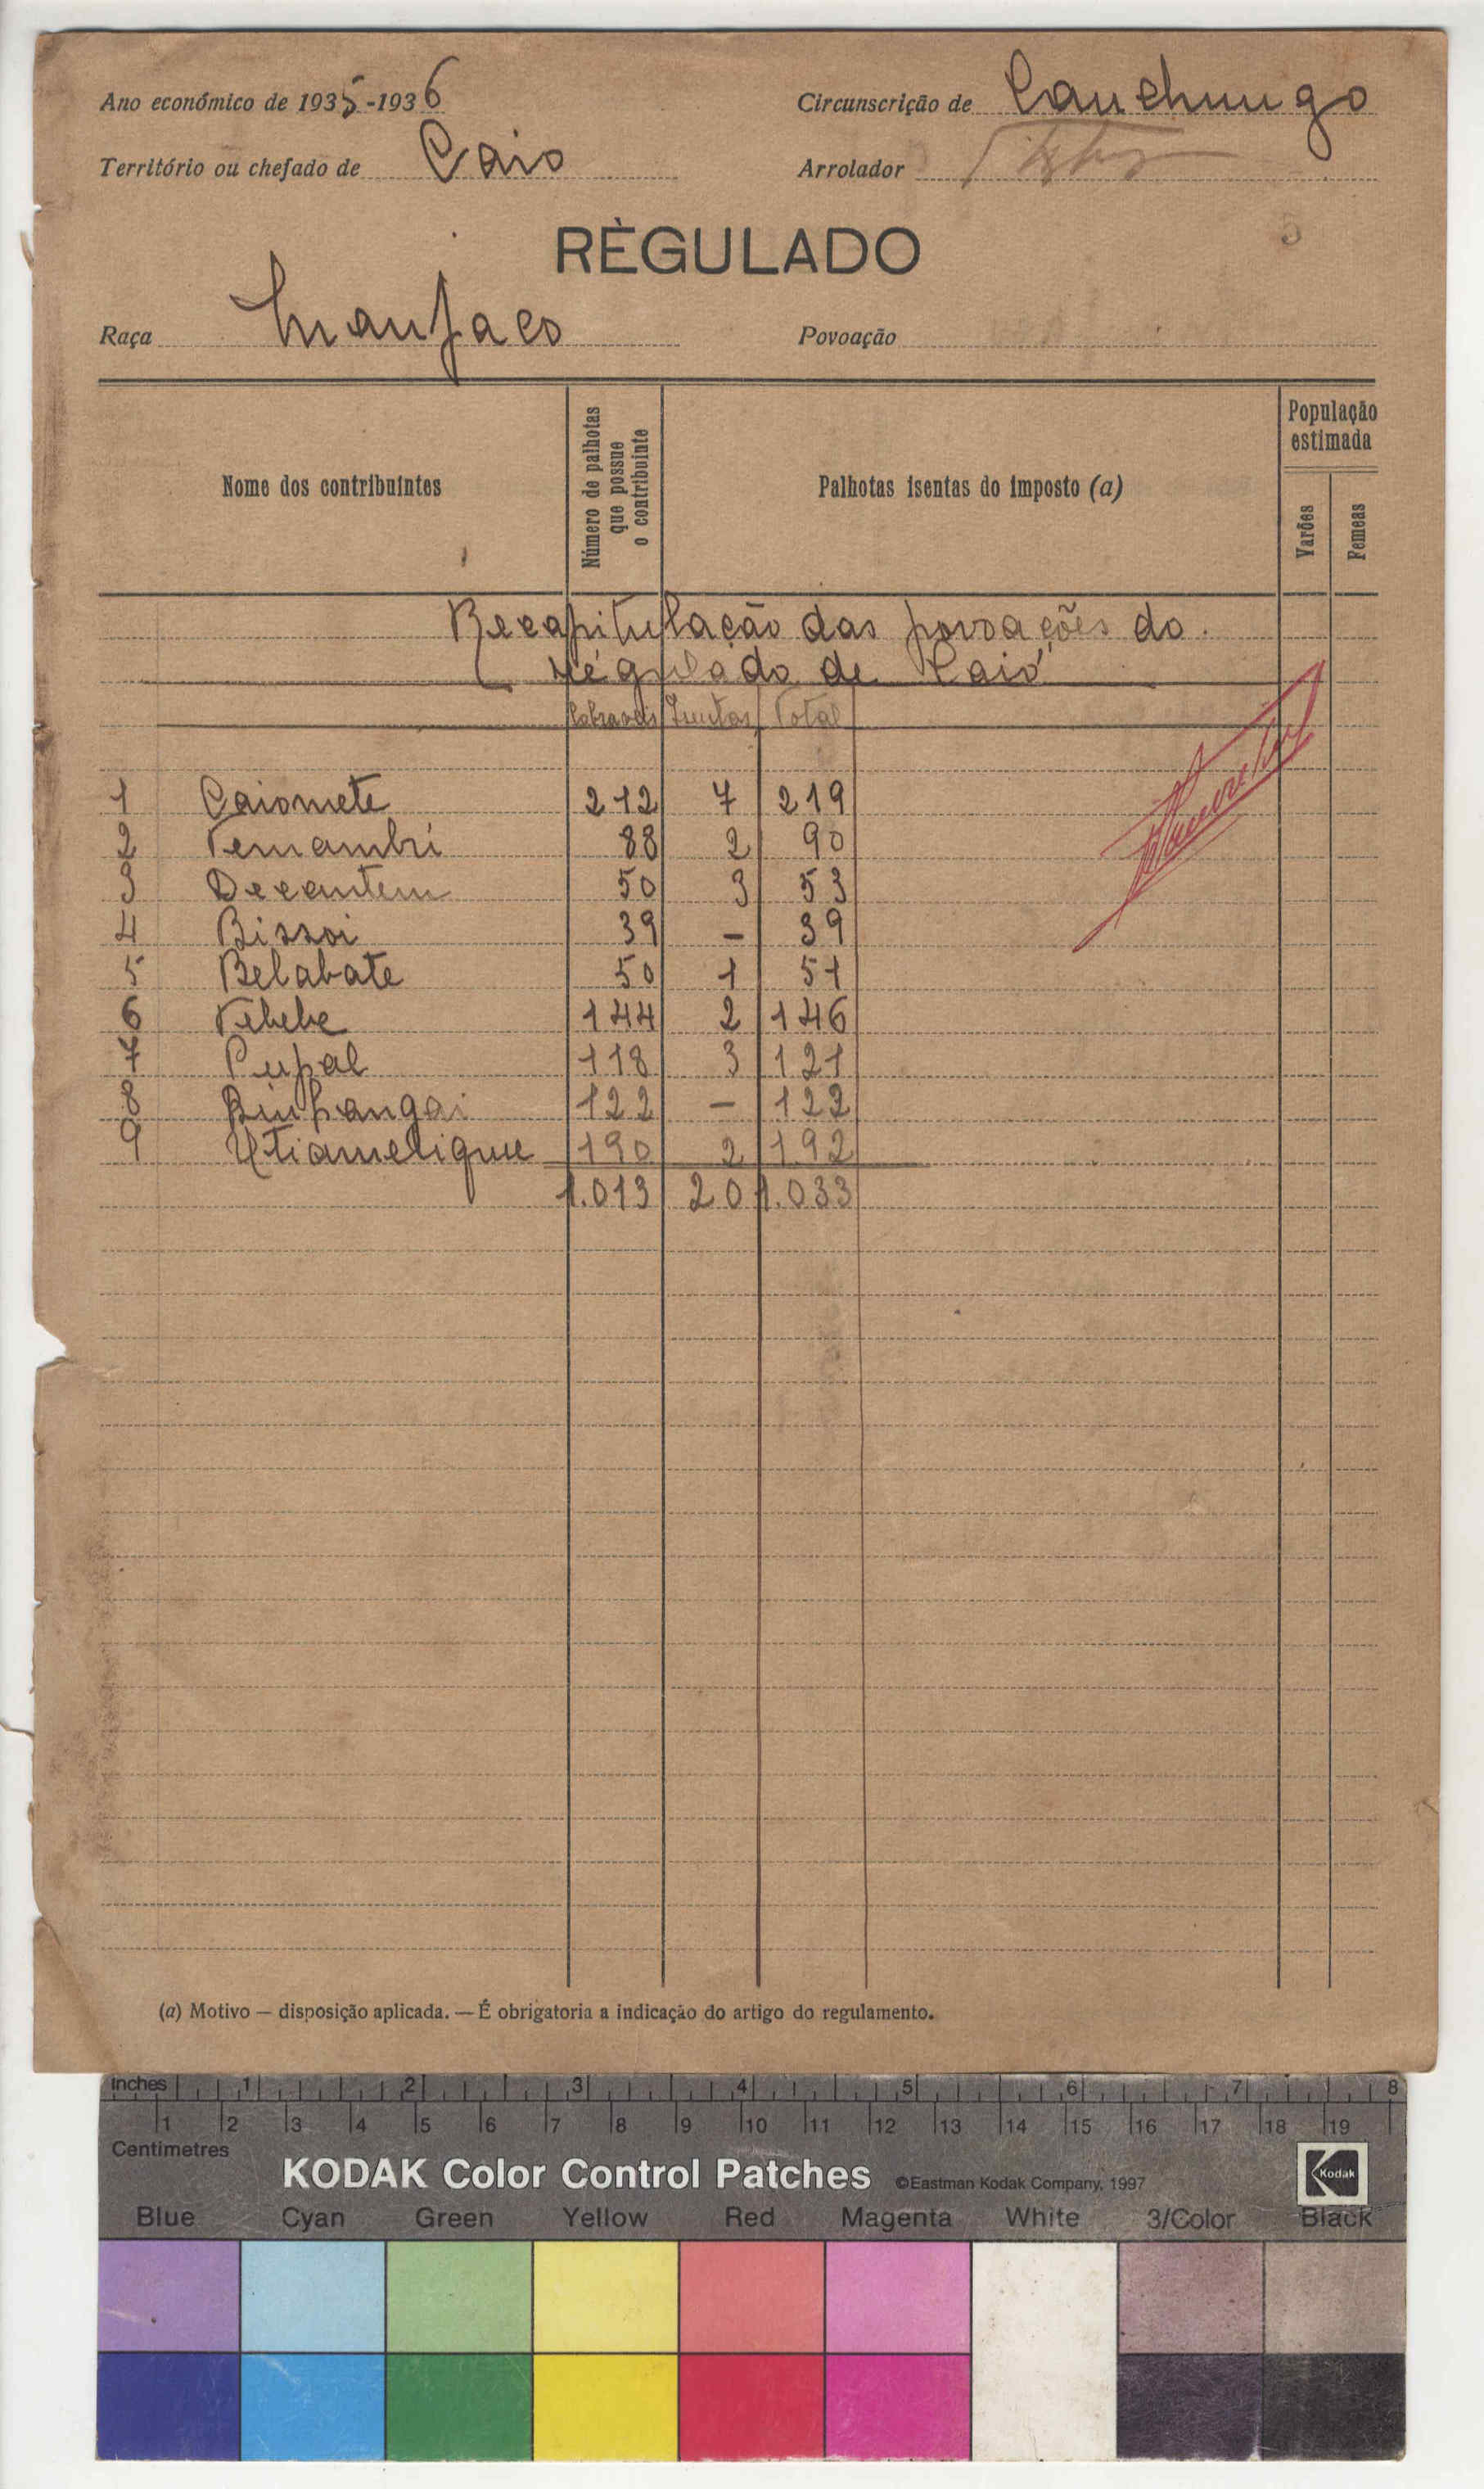 Ano económico de 1935-1936
Circunscrição de Canchungo
Território ou chefado de Caio
Arrolador
RÈGULADO
Raça Manjaco
Povoação
Nome dos contribuintes
Número de palhotas que possue o contribuinte
Palhotas isentas do imposto (a)
População estimada
Varões
Femeas
Recapitulação das povoações do
régulado de "Caió"
Cobraveis Izentas Total
1 Caiomete 212 7 219
2 Temambri 88 2 90
3 Decantem 50 3 53
4 Bissoi 39 - 39
5 Belabate 50 1 51
6 Tebebe 144 2 146
7 Pupal 118 3 121
8 Binhangai 122 - 122
9 Utiamelique 190 2 192
1.013 20 1.033
(a) Motivo — disposição aplicada. — É obrigatoria a indicação do artigo do regulamento.
Inches 1 2 3 4 5 6 7 8
1 2 3 4 5 6 7 8 9 10 11 12 13 14 15 16 17 18 19
Centimetres
KODAK Color Control Patches ©Eastman Kodak Company, 1997 Kodak
Blue Cyan Green Yellow Red Magenta White 3/Color Black